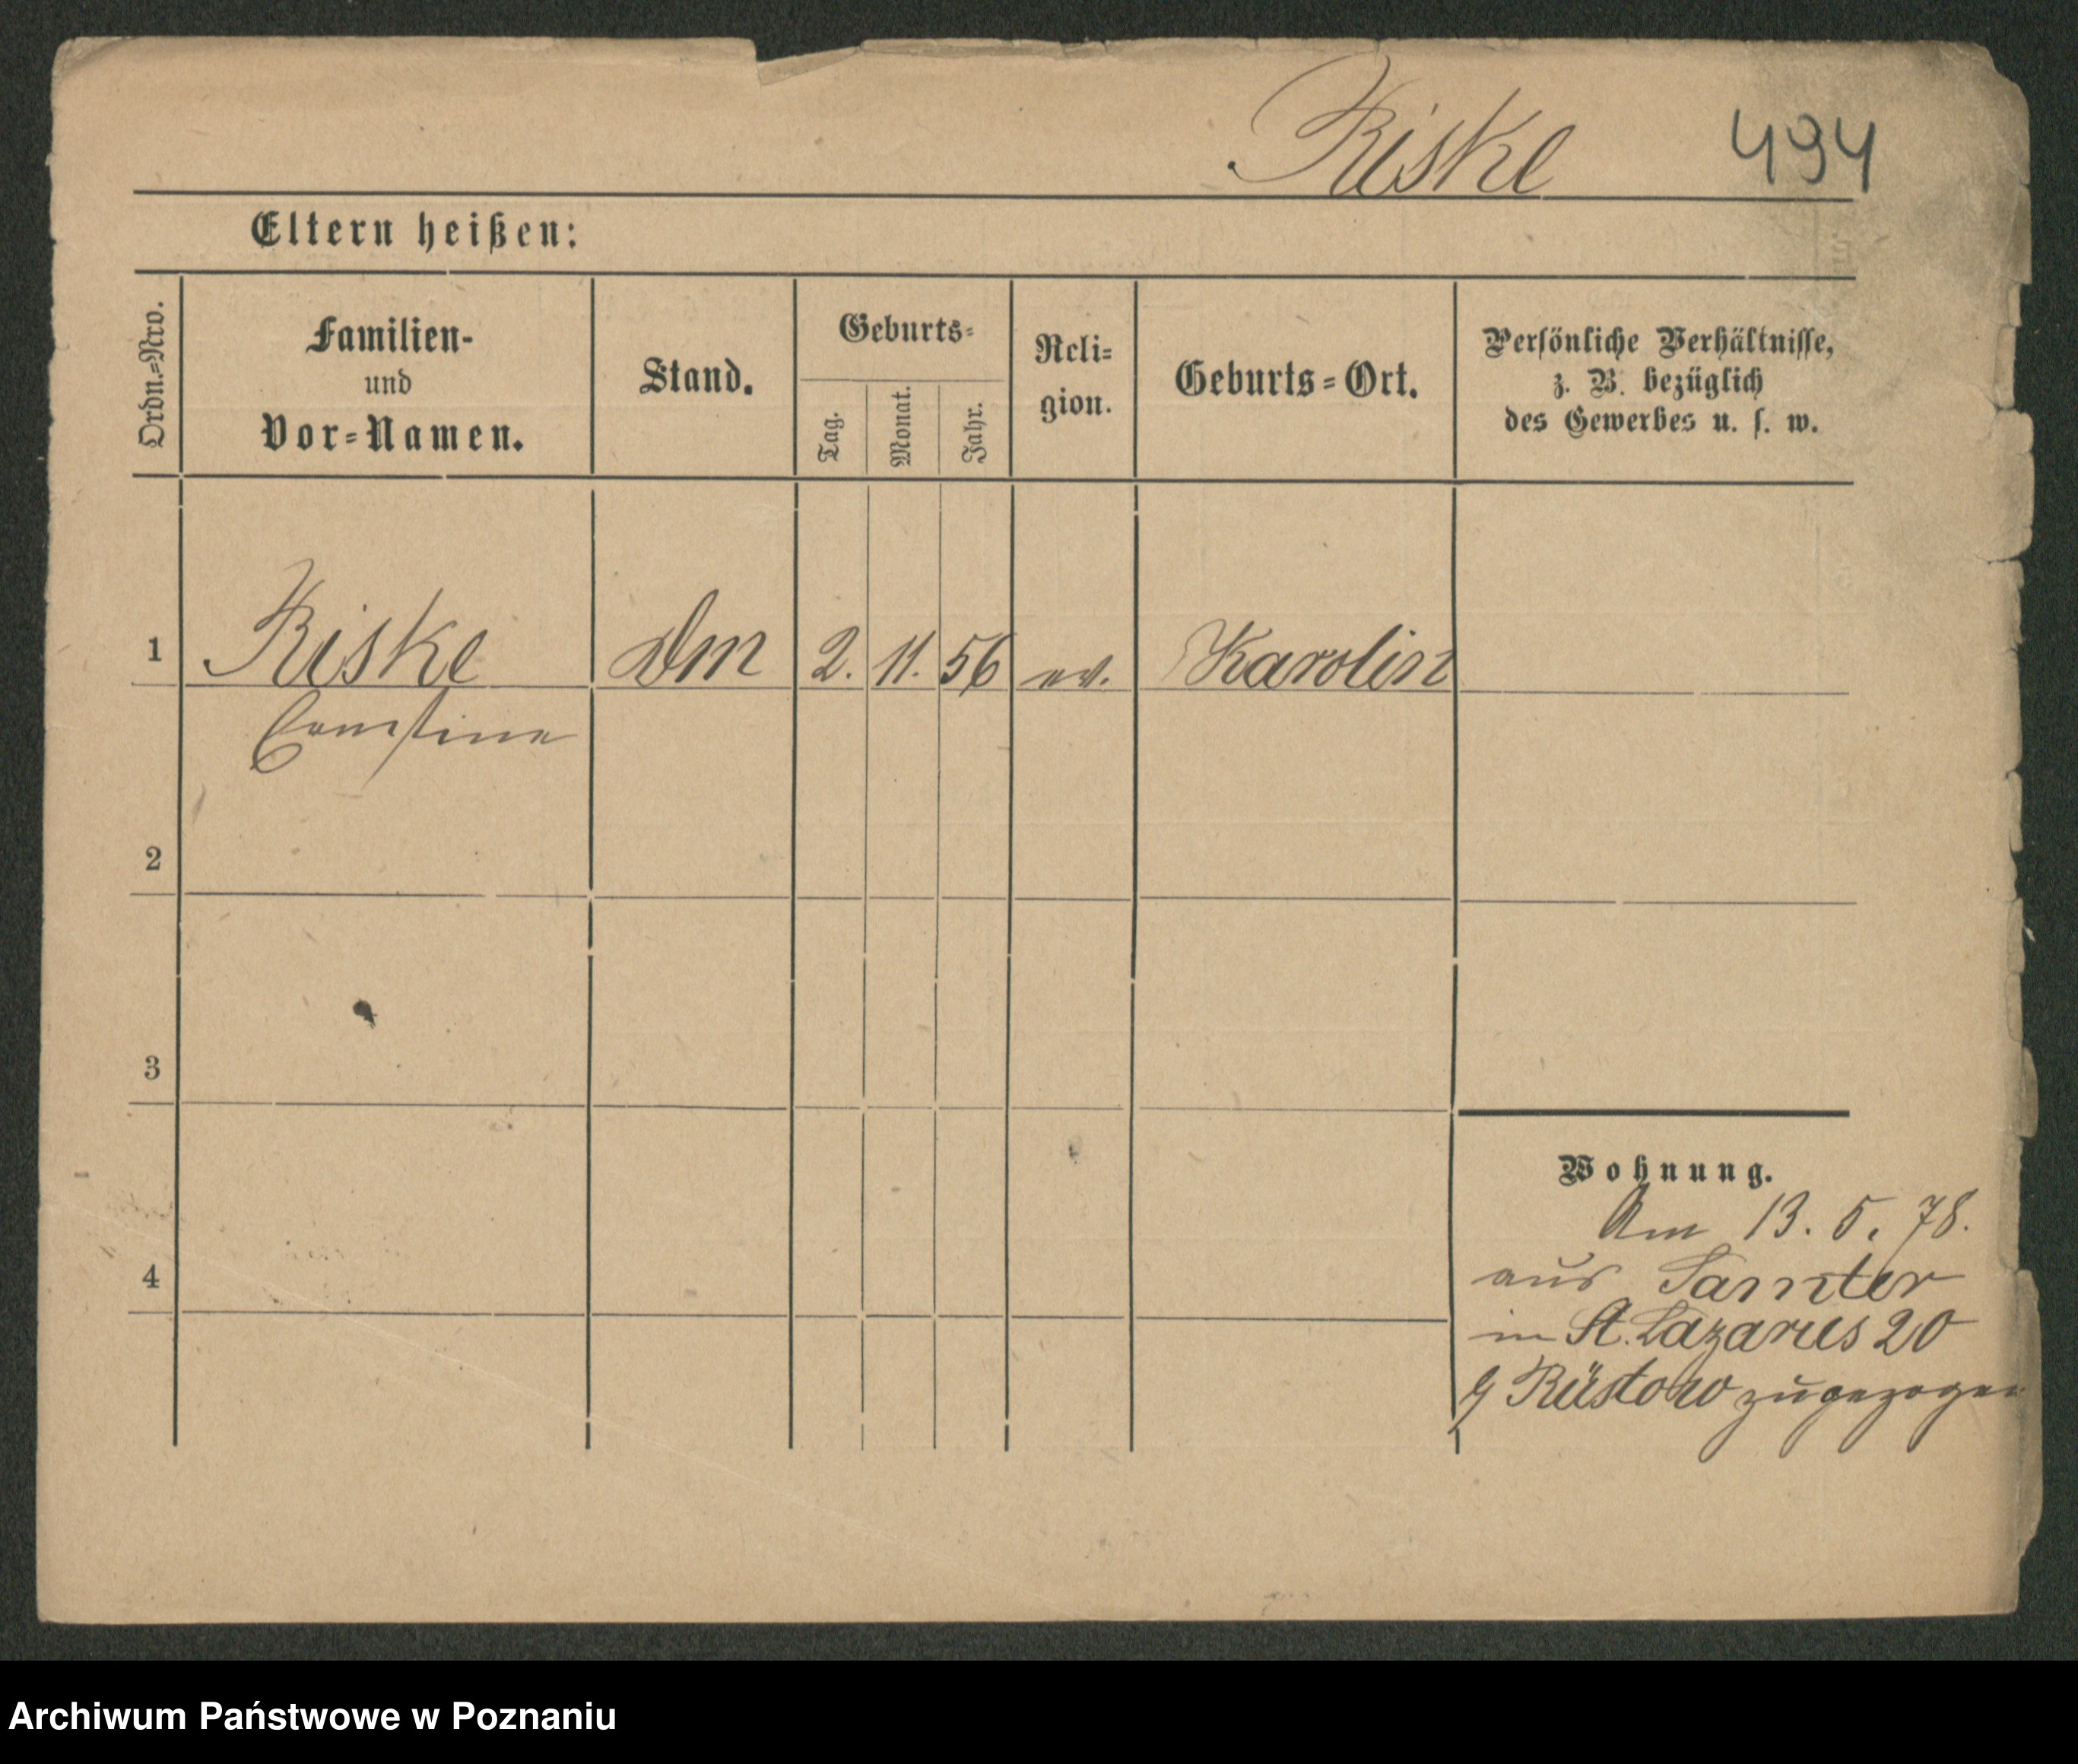 Riske 494
Eltern heißen:
Ordn.=Nro.
Familien-
und
Vor=Namen.
Stand.
Geburts=
Tag.
Monat.
Jahr.
Reli=
gion.
Geburts=Ort.
Persönliche Verhältnisse,
z. B. bezüglich
des Gewerbes u. s. w.
1 Riske Dm 2. 11. 56 ev. Karolin
Ernestine
2
3
4
Wohnung.
Am 13. 5. 78.
aus Samter
in St. Lazarus 20
Rüstow zugezogen
Archiwum Państwowe w Poznaniu